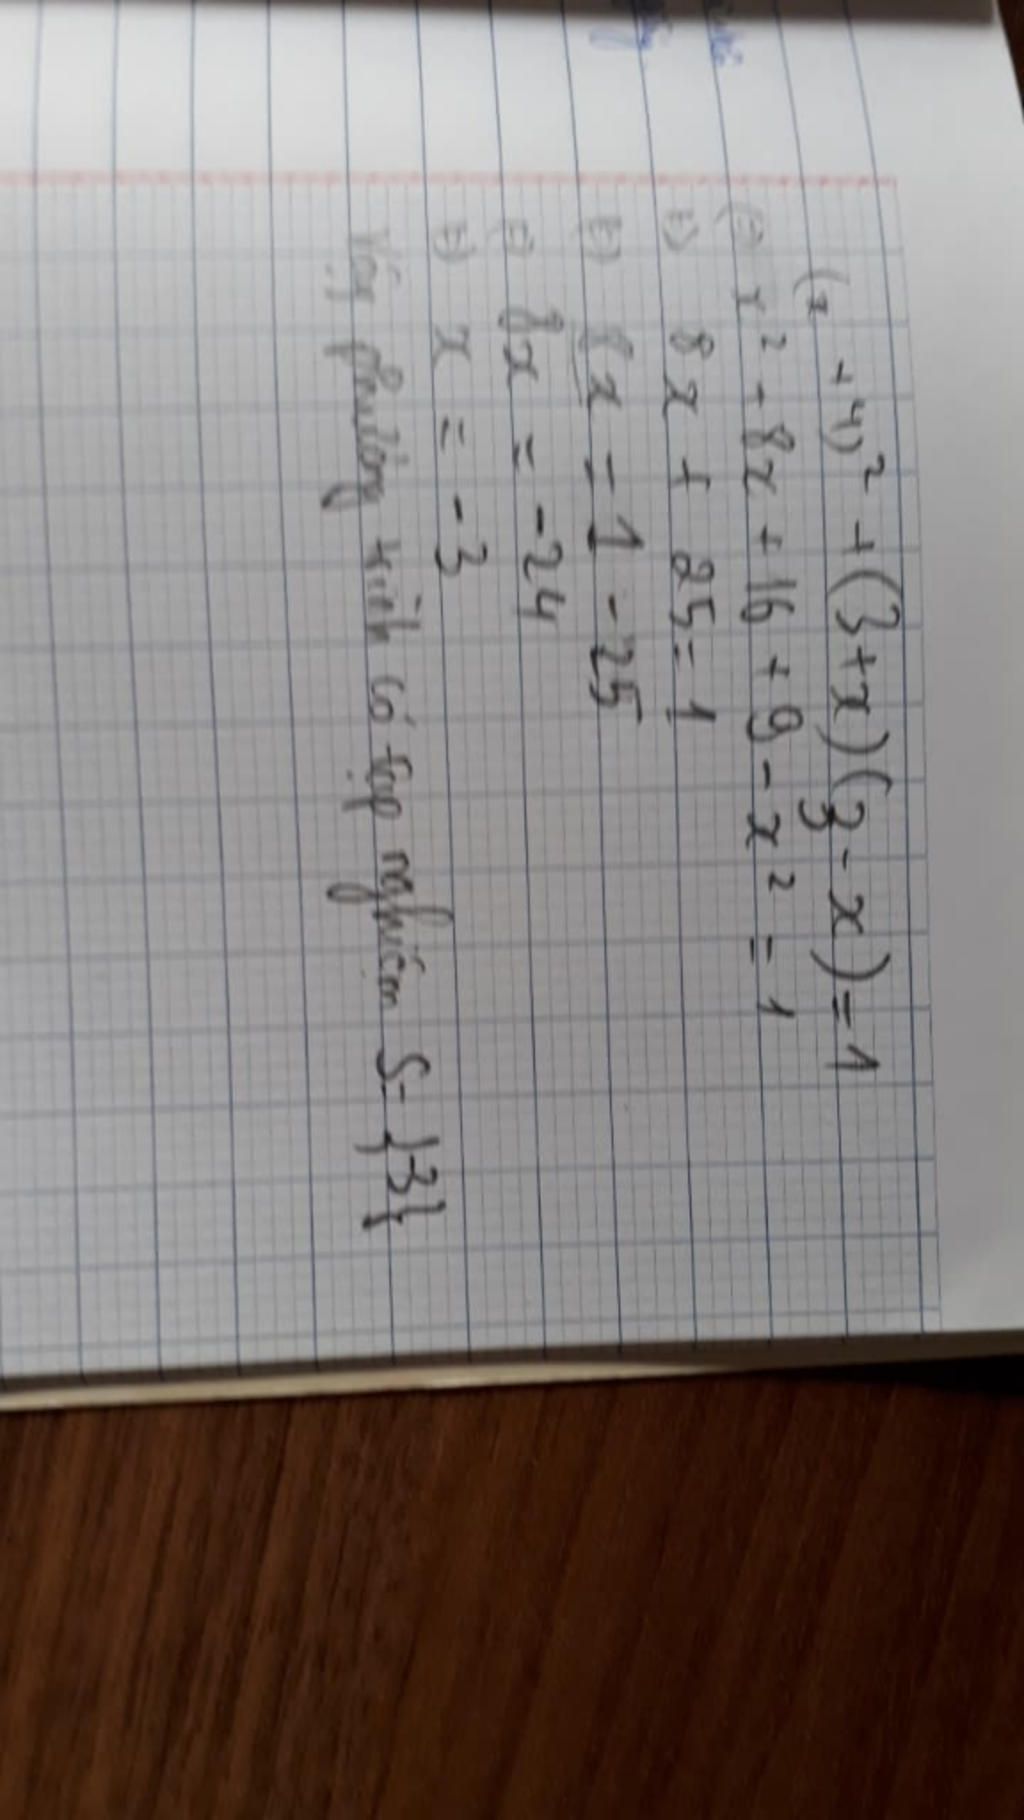 (x + 4)² + (3+x)(3-x) = 1
(=) x² + 8x + 16 + 9 - x² = 1
(=) 8x + 25 = 1
(=) 8x = 1 - 25
(=) 8x = -24
(=) x = -3
Vậy phương trình có tập nghiệm S = {-3}